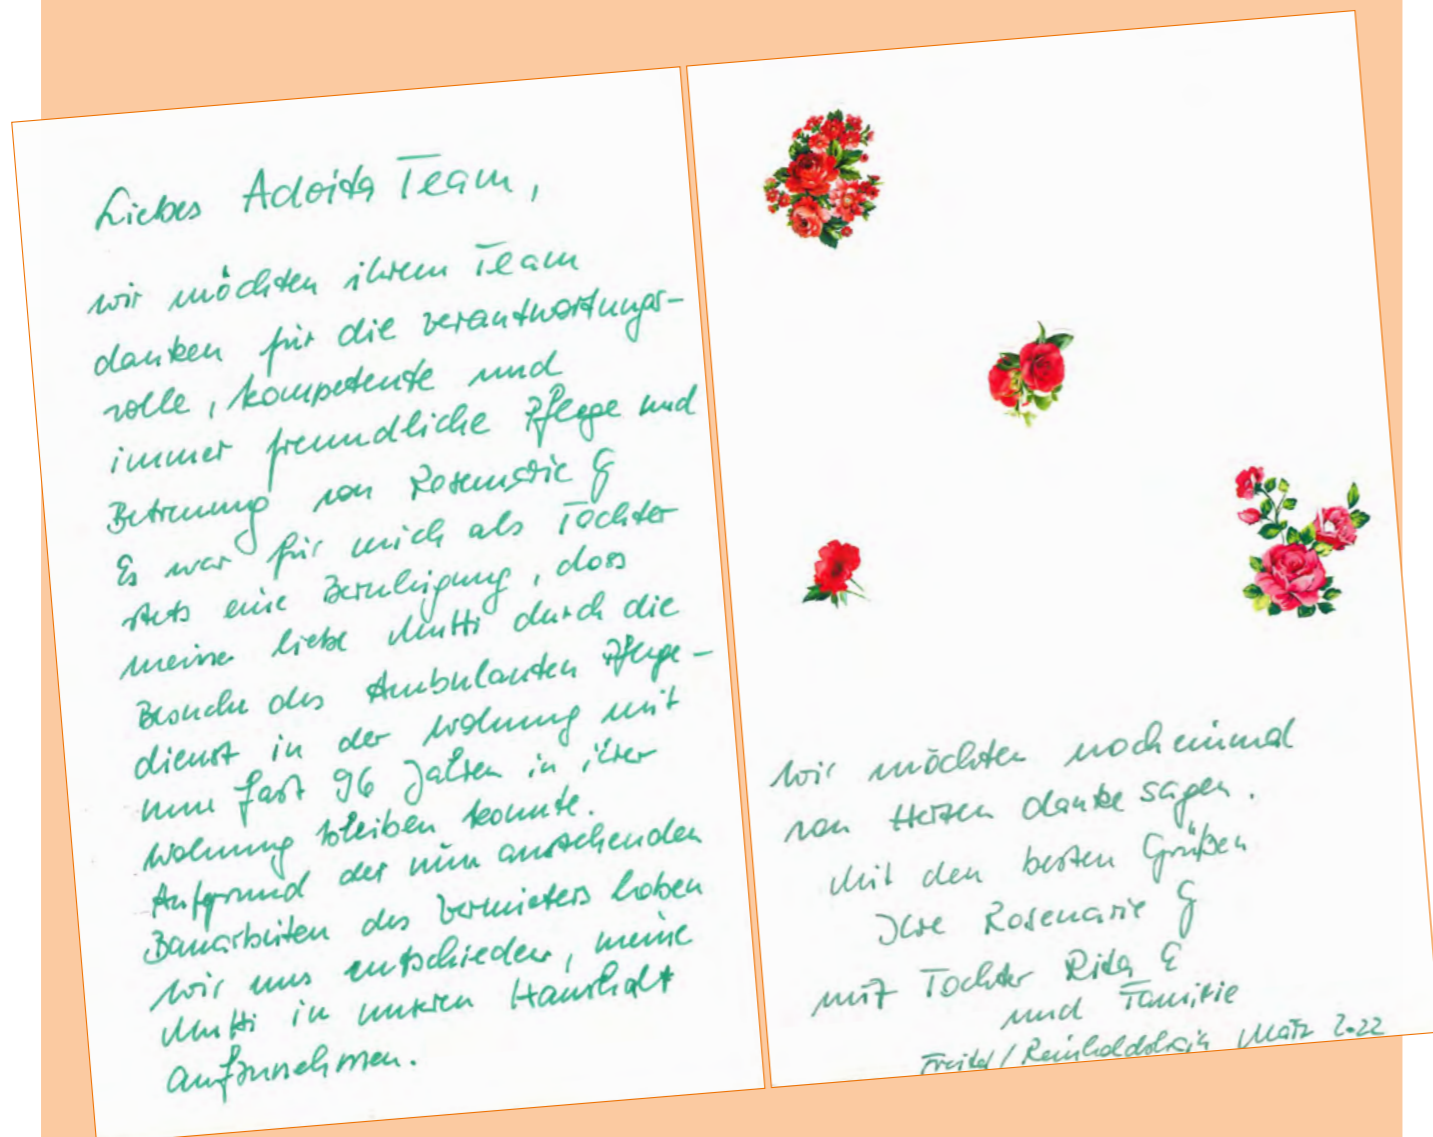 Liebes Advita Team,
wir möchten ihrem Team
danken für die verantwortungs-
volle, kompetente und
immer freundliche Pflege und
Betreuung von Rosemarie G
Es war für mich als Tochter
stets eine Beruhigung, dass
meine liebe Mutti durch die
Besuche des Ambulanten Pflege-
dienst in der Wohnung mit
nun fast 96 Jahren in ihrer
Wohnung bleiben konnte.
Aufgrund der nun anstehenden
Bauarbeiten des Vermieters haben
wir uns entschieden, meine
Mutti in unseren Haushalt
aufzunehmen.
Wir möchten noch einmal
von Herzen danke sagen.
Mit den besten Grüßen
Ihre Rosemarie G
mit Tochter Rita E
und Familie
Freital/Reinholdshain März 2022